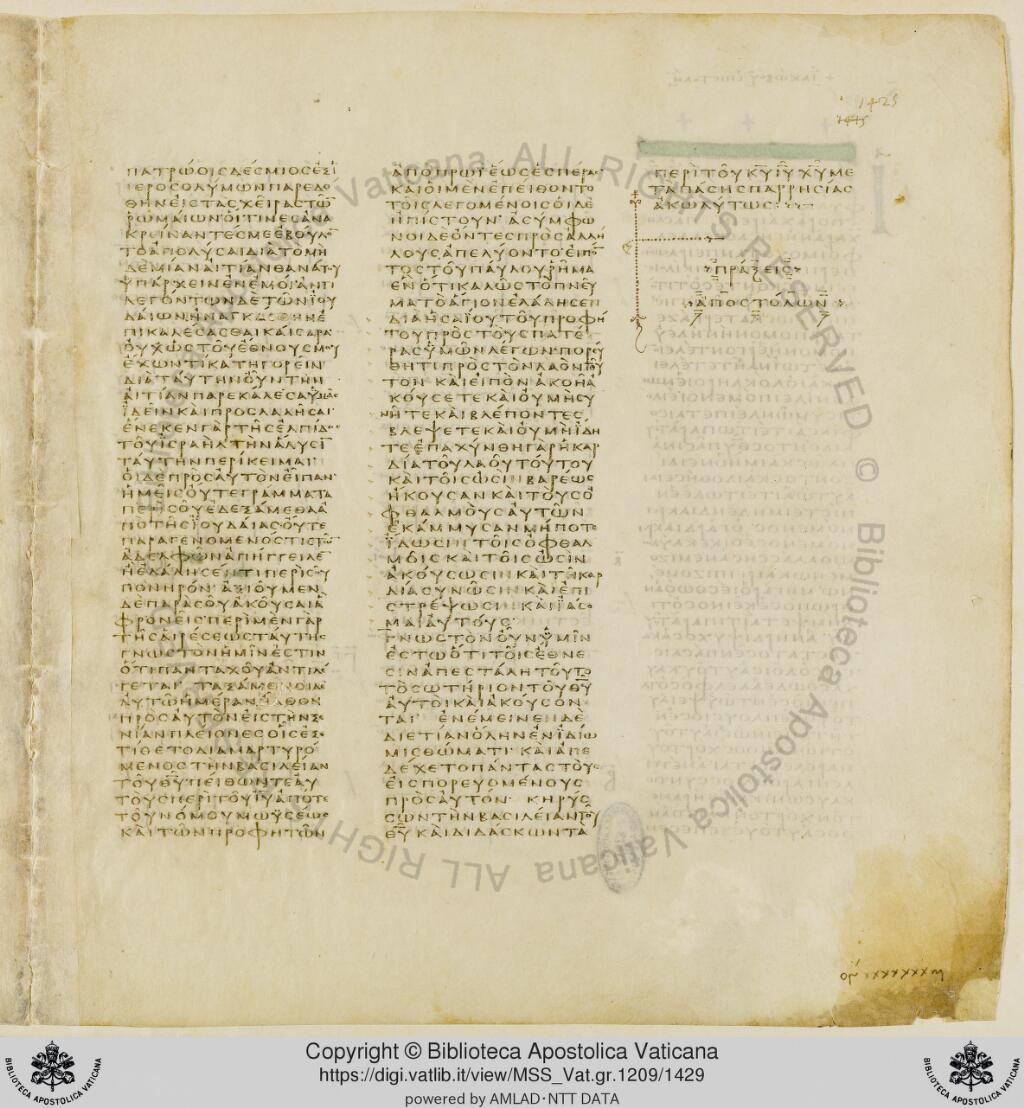 ΠΑΤΡΩΟΙΣΔΕΣΜΙΟΣΕΞΪ
ΕΡΟΣΟΛΥΜΩΝΠΑΡΕΔΟ
ΘΗΝΕΙΣΤΑΣΧΕΙΡΑΣΤΩ̅
ΡΩΜΑΙΩΝΟΙΤΙΝΕΣΑΝΑ
ΚΡΕΙΝΑΝΤΕΣΜΕΕΒΟΥΛΟ̅
ΤΟΑΠΟΛΥΣΑΙΔΙΑΤΟΜΗ
ΔΕΜΙΑΝΑΙΤΙΑΝΘΑΝΑΤΟΥ
ΥΠΑΡΧΕΙΝΕΝΕΜΟΙΑΝΤΙ
ΛΕΓΟΝΤΩΝΔΕΤΩΝΪΟΥ
ΔΑΙΩΝΗΝΑΓΚΑΣΘΗΝΕ
ΠΙΚΑΛΕΣΑΣΘΑΙΚΑΙΣΑΡΑ
ΟΥΧΩΣΤΟΥΕΘΝΟΥΣΜΟΥ
ΕΧΩΝΤΙΚΑΤΗΓΟΡΕΙΝ
ΔΙΑΤΑΥΤΗΝΟΥΝΤΗΝ
ΑΙΤΙΑΝΠΑΡΕΚΑΛΕΣΑΥΜΑΣ
ΪΔΕΙΝΚΑΙΠΡΟΣΛΑΛΗΣΑΙ·
ΕΝΕΚΕΝΓΑΡΤΗΣΕΛΠΙΔΟΣ
ΤΟΥΙΣΡΑΗΛΤΗΝΑΛΥΣΙ̅
ΤΑΥΤΗΝΠΕΡΙΚΕΙΜΑΙ·
ΟΙΔΕΠΡΟΣΑΥΤΟΝΕΙΠΑΝ·
ΗΜΕΙΣΟΥΤΕΓΡΑΜΜΑΤΑ
ΠΕΡΙΣΟΥΕΔΕΞΑΜΕΘΑΑ
ΠΟΤΗΣΪΟΥΔΑΙΑΣΟΥΤΕ
ΠΑΡΑΓΕΝΟΜΕΝΟΣΤΙΣΤΩ̅
ΑΔΕΛΦΩΝΑΠΗΓΓΕΙΛΕ̅
ΗΕΛΑΛΗΣΕΝΤΙΠΕΡΙΣΟΥ
ΠΟΝΗΡΟΝ·ΑΞΙΟΥΜΕΝ
ΔΕΠΑΡΑΣΟΥΑΚΟΥΣΑΙΑ
ΦΡΟΝΕΙΣΠΕΡΙΜΕΝΓΑΡ
ΤΗΣΑΙΡΕΣΕΩΣΤΑΥΤΗΣ
ΓΝΩΣΤΟΝΗΜΙΝΕΣΤΙΝ
ΟΤΙΠΑΝΤΑΧΟΥΑΝΤΙΛΕ
ΓΕΤΑΙ·ΤΑΞΑΜΕΝΟΙΔΕ
ΑΥΤΩΗΜΕΡΑΝΗΛΘΟΝ
ΠΡΟΣΑΥΤΟΝΕΙΣΤΗΝΞΕ
ΝΙΑΝΠΛΕΙΟΝΕΣΟΙΣΕΞΕ
ΤΙΘΕΤΟΔΙΑΜΑΡΤΥΡΟ
ΜΕΝΟΣΤΗΝΒΑΣΙΛΕΙΑΝ
ΤΟΥΘ̅Υ̅ΠΕΙΘΩΝΤΕΑΥ
ΤΟΥΣΠΕΡΙΤΟΥΙ̅Υ̅ΑΠΟΤΕ
ΤΟΥΝΟΜΟΥΜΩΥΣΕΩΣ
ΚΑΙΤΩΝΠΡΟΦΗΤΩΝ
ΑΠΟΠΡΩΙΕΩΣΕΣΠΕΡΑΣ
ΚΑΙΟΙΜΕΝΕΠΕΙΘΟΝΤΟ
ΤΟΙΣΛΕΓΟΜΕΝΟΙΣΟΙΔΕ
ΗΠΙΣΤΟΥΝ·ΑΣΥΜΦΩ
ΝΟΙΔΕΟΝΤΕΣΠΡΟΣΑΛΛΗ
ΛΟΥΣΑΠΕΛΥΟΝΤΟΕΙΠΟ̅
ΤΟΣΤΟΥΠΑΥΛΟΥΡΗΜΑ
ΕΝΟΤΙΚΑΛΩΣΤΟΠΝΕΥ
ΜΑΤΟΑΓΙΟΝΕΛΑΛΗΣΕΝ
ΔΙΑΗΣΑΙΟΥΤΟΥΠΡΟΦΗ
ΤΟΥΠΡΟΣΤΟΥΣΠΑΤΕ
ΡΑΣΥΜΩΝΛΕΓΩΝ·ΠΟΡΕΥ
ΘΗΤΙΠΡΟΣΤΟΝΛΑΟΝΤΟΥ
ΤΟΝΚΑΙΕΙΠΟΝΑΚΟΗΑ
ΚΟΥΣΕΤΕΚΑΙΟΥΜΗΣΥ
ΝΗΤΕΚΑΙΒΛΕΠΟΝΤΕΣ
ΒΛΕΨΕΤΕΚΑΙΟΥΜΗΙΔΗ
ΤΕΕΠΑΧΥΝΘΗΓΑΡΗΚΑΡ
ΔΙΑΤΟΥΛΑΟΥΤΟΥΤΟΥ
ΚΑΙΤΟΙΣΩΣΙΝΒΑΡΕΩΣ
ΗΚΟΥΣΑΝΚΑΙΤΟΥΣΟ
ΦΘΑΛΜΟΥΣΑΥΤΩΝ
ΕΚΑΜΜΥΣΑΝΜΗΠΟΤΕ
ΪΔΩΣΙΝΤΟΙΣΟΦΘΑΛ
ΜΟΙΣΚΑΙΤΟΙΣΩΣΙΝ
ΑΚΟΥΣΩΣΙΝΚΑΙΤΗΚΑΡ
ΔΙΑΣΥΝΩΣΙΝΚΑΙΕΠΙ
ΣΤΡΕΨΩΣΙΝΚΑΙΪΑΣΟ
ΜΑΙΑΥΤΟΥΣ·
ΓΝΩΣΤΟΝΟΥΝΥΜΙΝ
ΕΣΤΩΟΤΙΤΟΙΣΕΘΝΕ
ΣΙΝΑΠΕΣΤΑΛΗΤΟΥΤΟ
ΤΟΣΩΤΗΡΙΟΝΤΟΥΘ̅Υ̅
ΑΥΤΟΙΚΑΙΑΚΟΥΣΟΝ
ΤΑΙ·ΕΝΕΜΕΙΝΕΝΔΕ
ΔΙΕΤΙΑΝΟΛΗΝΕΝΪΔΙΩ
ΜΙΣΘΩΜΑΤΙ·ΚΑΙΑΠΕ
ΔΕΧΕΤΟΠΑΝΤΑΣΤΟΥΣ
ΕΙΣΠΟΡΕΥΟΜΕΝΟΥΣ
ΠΡΟΣΑΥΤΟΝ·ΚΗΡΥΣ
ΣΩΝΤΗΝΒΑΣΙΛΕΙΑΝΤΟΥ
Θ̅Υ̅ΚΑΙΔΙΔΑΣΚΩΝΤΑ
1425
ΠΕΡΙΤΟΥΚ̅Υ̅Ι̅Υ̅Χ̅Υ̅ΜΕ
ΤΑΠΑΣΗΣΠΑΡΡΗΣΙΑΣ
ΑΚΩΛΥΤΩΣ:
ΠΡΑΞΕΙΣ
ΑΠΟΣΤΟΛΩΝ
Vaticana ALL RIGHTS RESERVED © Biblioteca Apostolica Vaticana ALL RIGH
Copyright © Biblioteca Apostolica Vaticana
https://digi.vatlib.it/view/MSS_Vat.gr.1209/1429
powered by AMLAD·NTT DATA
BIBLIOTECA APOSTOLICA VATICANA
BIBLIOTECA APOSTOLICA VATICANA